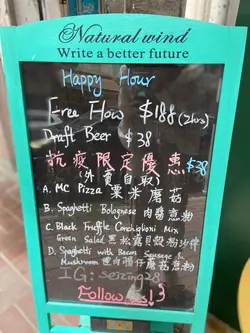 Natural wind
Write a better future
Happy Hour
Free Flow $188 (2hrs)
Draft Beer $38
抗疫限定優惠 $38
(外賣自取)
A. MC Pizza 粟米蘑菇
B. Spaghetti Bolognese 肉醬意粉
C. Black Truffle Conchiglioni Mix
Green Salad 黑松露貝殼粉沙律
D. Spaghetti with Bacon Sausage &
Mushroom 煙肉腸仔蘑菇意粉
IG: seizing28
Follow us!